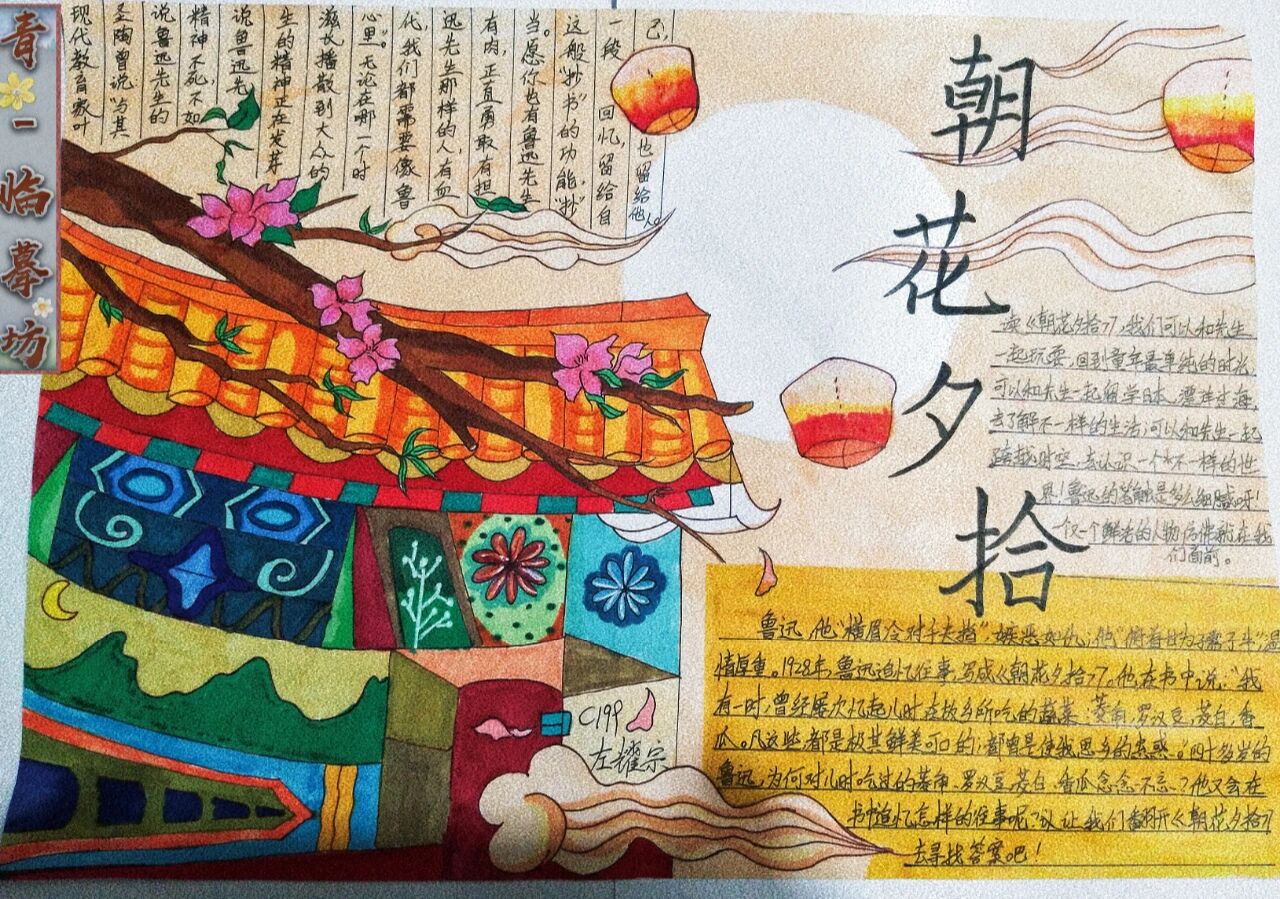 青一临摹坊
朝花夕拾
现代教育家叶
圣陶曾说"与其
说鲁迅先生的
精神不死,不如
说鲁迅先
生的精神正在发芽
滋长播散到大众的
心里"。无论在哪一个时
代,我们都需要像鲁
迅先生那样的人,有血
有肉,正直勇敢有担
当。愿你也有鲁迅先生
这般"抄书"的功能,"抄"
一段回忆,留给自
己,也留给他人。
读《朝花夕拾》,我们可以和先生
一起玩耍,回到童年最单纯的时光,
可以和先生一起留学日本,漂洋过海,
去了解不一样的生活;可以和先生一起
跨越时空,去认识一个个不一样的性
!鲁迅的笔触是多么细腻呀!
一个鲜活的人物在我
们面前。
鲁迅,他"横眉冷对千夫指",嫉恶如仇;他"俯首甘为孺子牛",温
情厚重。1928年,鲁迅追忆往事,写成《朝花夕拾》。他在书中说:"我
有一时,曾经屡次忆起儿时在故乡所吃的蔬菜:菱角,罗汉豆,茭白,香
瓜。凡这些,都是极其鲜美可口的;都曾是使我思乡的蛊惑。"四十多岁的
鲁迅,为何对儿时吃过的菱角、罗汉豆、茭白、香瓜念念不忘?他又会在
书中追忆怎样的往事呢?让我们翻开《朝花夕拾》
去寻找答案吧!
C199
左耀宗